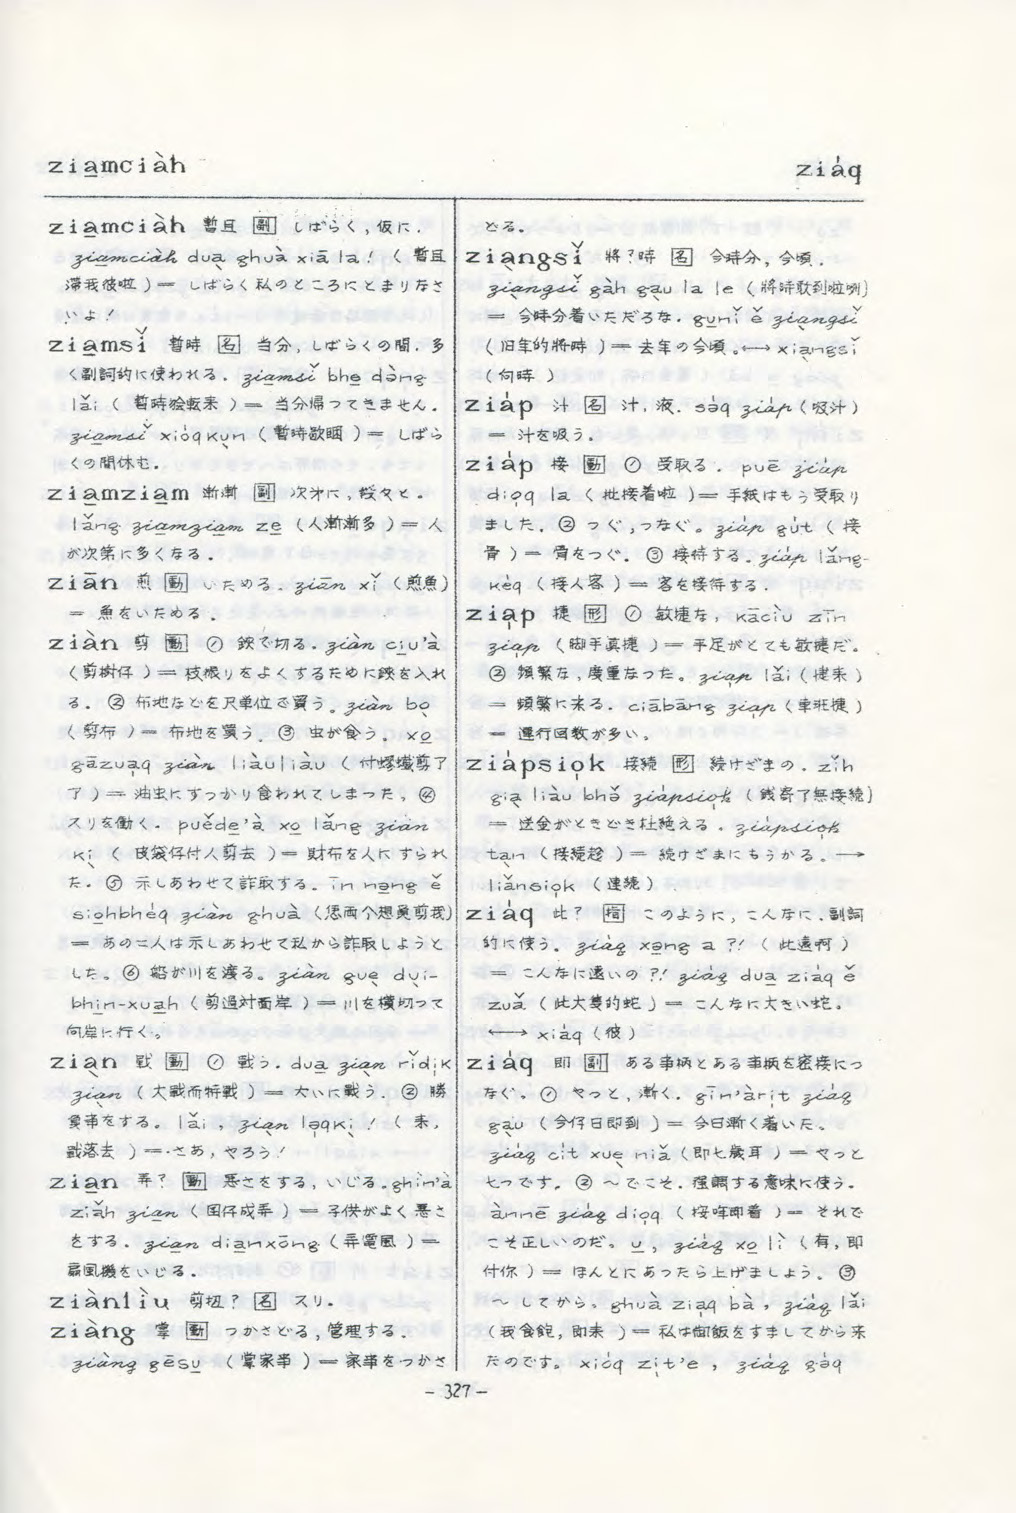 ziamciàh
ziáq
ziamciàh 暫且 副 しばらく, 仮に.
ziamciàh dua ghuà xiā la! ( 暫且
滯我彼啦 ) = しばらく私のところにとまりなさ
いよ!
ziamsǐ 暫時 名 当分, しばらくの間. 多
く副詞的に使われる. ziamsǐ bhe dòng
lǎi ( 暫時獪転来 ) = 当分帰ってきません.
ziamsǐ xióqkun ( 暫時歇睏 ) = しばら
くの間休む.
ziamziam 漸漸 副 次第に, 段々と.
lǎng ziamziam ze (人漸漸多) = 人
が次第に多くなる.
ziān 煎 動 いためる. ziān xǐ (煎魚)
= 魚をいためる.
ziàn 剪 動 ① 鋏で切る. ziàn ciu'à
(剪樹仔) = 枝振りをよくするために鋏を入れ
る. ② 布地などを尺単位で買う. ziàn bo
( 剪布 ) = 布地を買う. ③ 虫が食う. xo
gāzuaq ziàn liàuliàu ( 付虼蠘剪了
了 ) = 油虫にすっかり食われてしまった. ④
スリを働く. puěde'à xo lǎng ziàn
ki ( 皮袋仔付人剪去 ) = 財布を人にすられ
た. ⑤ 示しあわせて詐取する. in nang ě
siohbhéq ziàn ghuà (恁両个想夐剪我)
= あの二人は示しあわせて私から詐取しようと
した. ⑥ 船が川を渡る. ziàn gue dui-
bhin-xuah (剪過対面岸) = 川を横切って
向岸に行く.
zian 戦 動 ① 戦う. dua zian rǐdik
zian (大戦而特戦) = 大いに戦う. ② 勝
負事をする. lǎi, zian laqki! ( 来,
戦落去 ) = さあ, やろう!
zian 弄? 動 悪さをする, いじる. ghin'à
ziǎh zian (囝仔成弄) = 子供がよく悪さ
をする. zian dianxōng (弄電風) =
扇風機をいじる.
ziànliu 剪扭? 名 スリ.
ziàng 掌 動 つかさどる, 管理する.
ziàng gēsu (掌家事) = 家事をつかさ
どる.
ziangsǐ 將?時 名 今時分, 今頃.
ziangsǐ gàh gau la le (將時敢到啦咧)
= 今時分着いただろな. gunǐ ě ziangsǐ
(旧年的將時) = 去年の今頃. ⟷ xiangsǐ
(向時)
ziáp 汁 名 汁, 液. sǝq ziáp (吸汁)
= 汁を吸う.
ziáp 接 動 ① 受取る. puē ziáp
dioq la ( 批接着啦 ) = 手紙はもう受取り
ました. ② つぐ, つなぐ. ziáp gút (接
骨) = 骨をつぐ. ③ 接待する. ziáp lǎng-
kéq (接人客) = 客を接待する.
ziap 捷 形 ① 敏捷な, kāciù zīn
ziap (脚手真捷) = 手足がとても敏捷だ.
② 頻繁な, 度重なった. ziap lǎi (捷来)
= 頻繁に来る. ciābāng ziap (車班捷)
= 運行回数が多い.
ziápsiok 接続 形 続けざまの. zǐh
gia liàu bhǒ ziápsiok (銭寄了無接続)
= 送金がときどき杜絶える. ziápsiok
tan (接続趁) = 続けざまにもうかる. ⟶
liǎnsiok (連続)
ziáq 此? 指 このように, こんなに. 副詞
的に使う. ziáq xang a?! (此遠啊)
= こんなに遠いの?! ziáq dua ziáq ě
zuǎ (此大隻的蛇) = こんなに大きい蛇.
⟷ xiáq (彼)
ziáq 即 副 ある事柄とある事柄を密接につ
なぐ. ① やっと, 漸く. gīn'àrit ziáq
gau (今仔日即到) = 今日漸く着いた.
ziáq cit xue niā (即七歳耳) = やっと
七つです. ② ～でこそ. 強調する意味に使う.
ànnē ziáq dioq (按哖即着) = それで
こそ正しいのだ. u, ziáq xo lì (有, 即
付你) = ほんとにあったら上げましょう. ③
～してから. ghuà ziaq bà, ziáq lǎi
(我食飽, 即来) = 私は御飯をすましてから来
たのです. xióq zit'e, ziáq gǝq
- 327 -